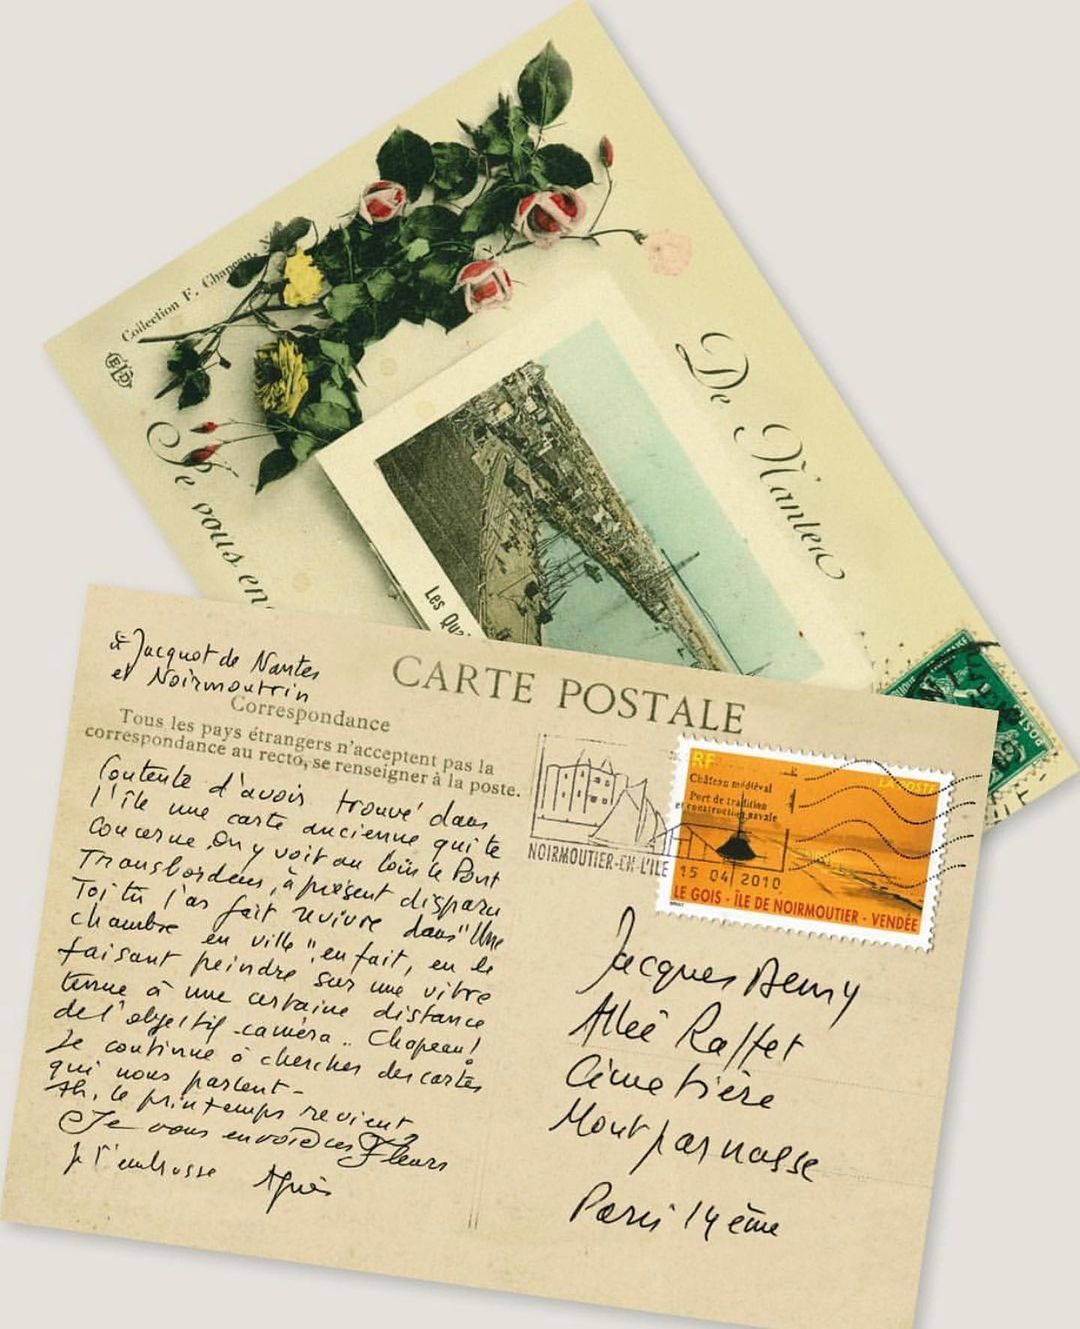 Collection F. Chapeau,
ELD
De Nantes
Je vous en
Les Qua
POSTES
à Jacquot de Nantes
et Noirmoutrin
CARTE POSTALE
Correspondance
Tous les pays étrangers n'acceptent pas la
correspondance au recto, se renseigner à la poste.
Contente d'avoir trouvé dans
l'île une carte ancienne qui te
concerne. On y voit au loin le Pont
Transbordeur, à présent disparu
Toi tu l'as fait revivre dans "Une
chambre en ville", en fait, en le
faisant peindre sur une vitre
tenue à une certaine distance
de l'objectif-caméra.. Chapeau!
Je continue à chercher des cartes
qui nous parlent-
Ah, le printemps revient
Je vous envoie ces Fleurs
Je t'embrasse Agnès
RF
LA POSTE
Château médiéval
Port de tradition
et construction navale
NOIRMOUTIER-EN-L'ILE
15 04 2010
LE GOIS - ÎLE DE NOIRMOUTIER - VENDÉE
Jacques Demy
Allée Raffet
Cimetière
Montparnasse
Paris 14ème